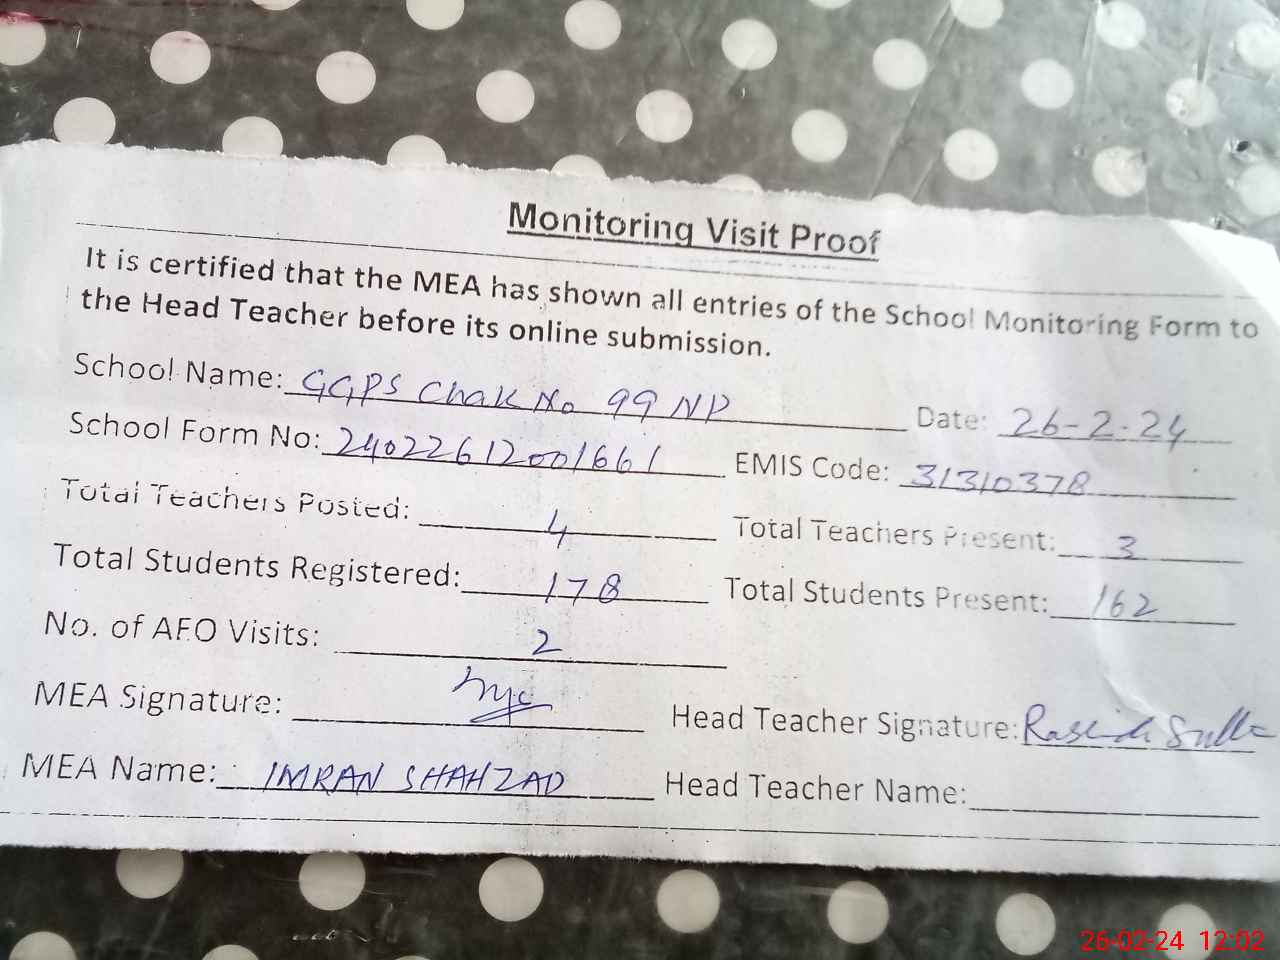 Monitoring Visit Proof
It is certified that the MEA has shown all entries of the School Monitoring Form to
the Head Teacher before its online submission.
School Name: GGPS Chak No 99 NP Date: 26-2-24
School Form No: 240226120001661 EMIS Code: 31310378
Total Teachers Posted: 4 Total Teachers Present: 3
Total Students Registered: 178 Total Students Present: 162
No. of AEO Visits: 2
MEA Signature: Head Teacher Signature:
MEA Name: IMRAN SHAHZAD Head Teacher Name:
26-02-24 12:02